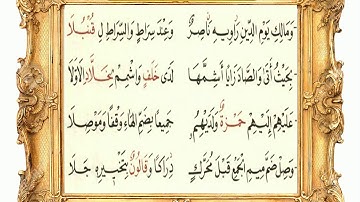 - وَمَالِكِ يَوْمِ الدِّينِ رَاوِيهِ نَاصِرٌ وَعِنْدَ سِرَاطٍ وَالسِّرَاطَ لِ قُنْبُلَا
- بِحَيْثُ أَتَى وَالصَّادَ زَايًا أَشِمَّهَا لَدَى خَلَفٍ وَاشْمِمْ لِخَلَّادٍ الَاوَّلَا
- عَلَيْهِمْ إِلَيْهِمْ حَمْزَةٌ وَلَدَيْهِمُ جَمِيعًا بِضَمِّ الْهَاءِ وَقْفًا وَمَوْصِلَا
- وَصِلْ ضَمَّ مِيمِ الْجَمْعِ قَبْلَ مُحَرَّكٍ دِرَاكًا وَقَالُونٌ بِتَخْيِيرِهِ جَلَا